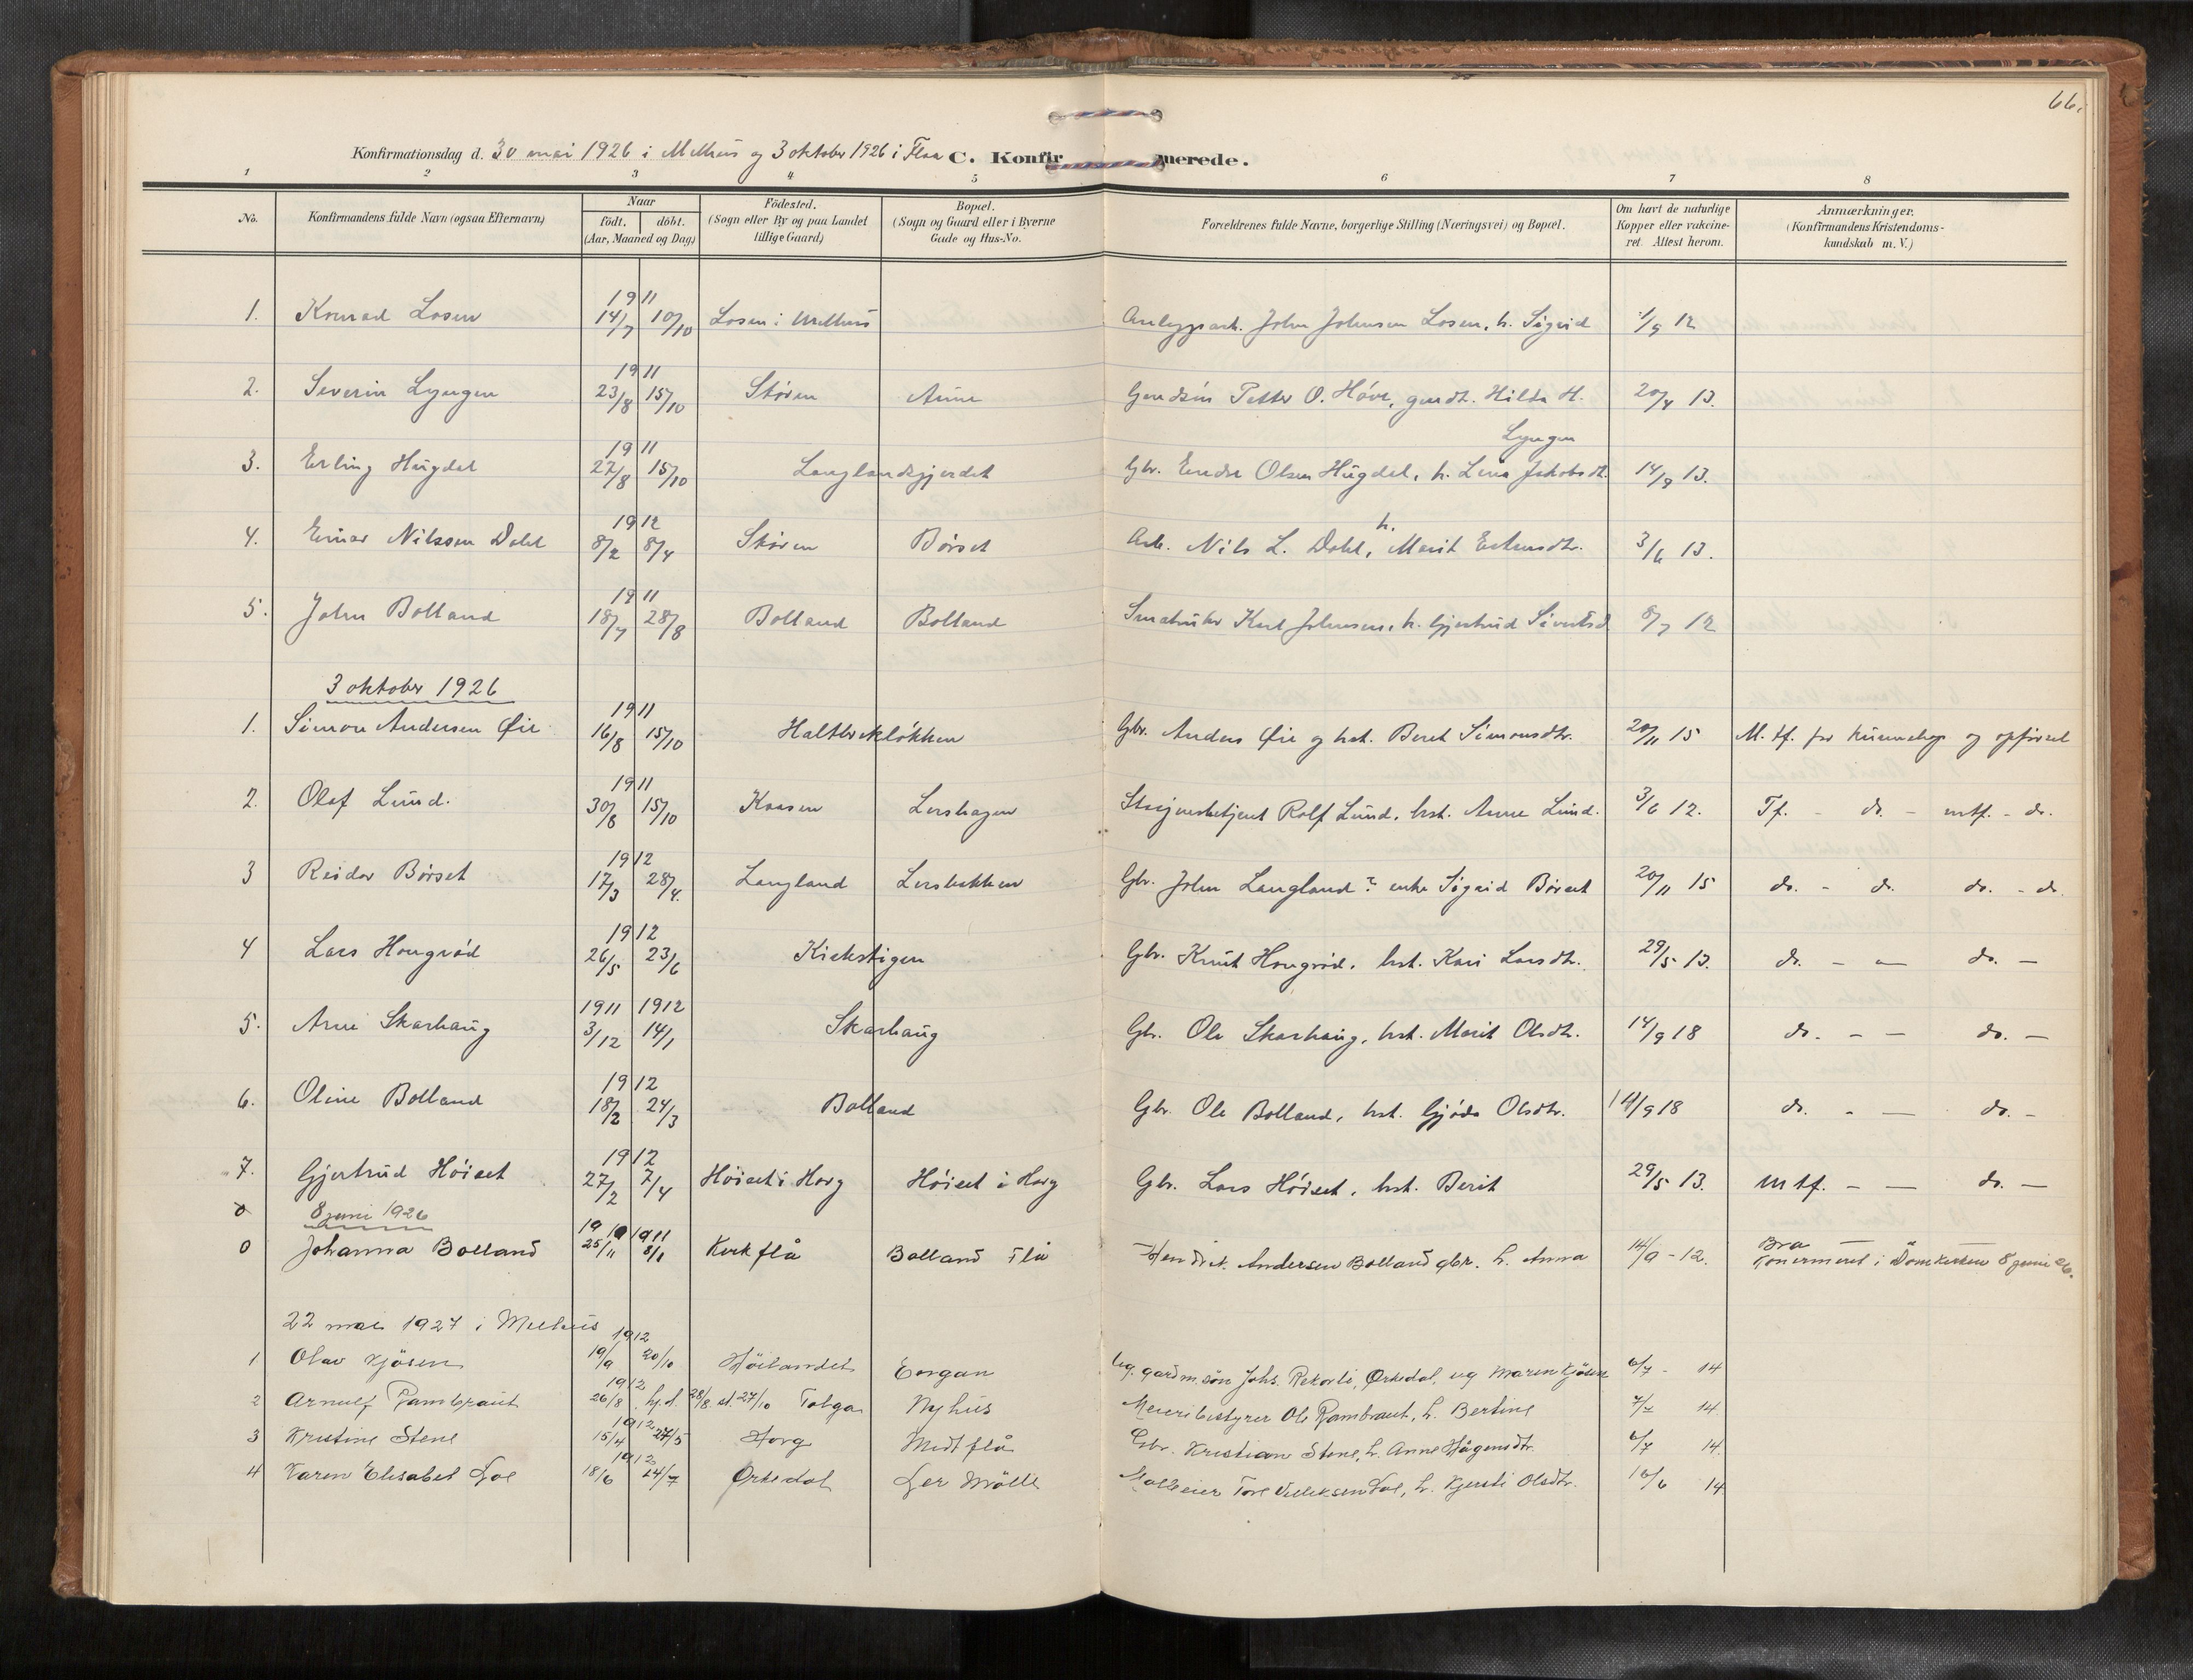 66.
Konfirmationsdag d. 30 mai 1926 i Melhus og 3 oktober 1926 i Flaa C. Konfirmerede.
1 2 3 4 5 6 7 8
No. Konfirmandens fulde Navn (ogsaa Efternavn) Naar födt. döbt. (Aar, Maaned og Dag) Födested. (Sogn eller By og paa Landet tillige Gaard) Bopæl. (Sogn og Gaard eller i Byerne Gade og Hus-No. Forældrenes fulde Navne, borgerlige Stilling (Næringsvei) og Bopæl. Om havt de naturlige Kopper eller vakcineret. Attest herom. Anmærkninger. (Konfirmandens Kristendomskundskab m. V.)
1911
1. Konrad Losen 14/7 10/10 Losen i Melhus Anleggsarb. John Johnsen Losen, h. Sigrid 1/9 12
1911
2. Severin Lyngen 23/8 15/10 Stören Aune Gaardsøn Petter O. Hove, gmdt. Hilda H. Lyngen 20/4 13.
1911
3. Erling Hugdal 27/8 15/10 Langlandsgjerdet Gbr. Endre Olsen Hugdal, h. Lina Jakobsdt. 14/9 13.
1912
4. Einar Nilssen Dahl 8/2 8/4 Stören Börset Arb. Nils L. Dahl, h. Marit Estensdtr. 3/6 13.
1911
5. John Bolland 18/7 28/8 Bolland Bolland Smabruker Kurt Johnsen, h. Gjertrud Sivertsd. 8/7 12
3 oktober 1926
1911
1. Simon Andersen Øie 16/8 15/10 Haltbrekløkken Gbr. Anders Øie og hst. Beret Simonsdtr. 20/11 15 M. tf. for kunnskap og opførsel
1911
2. Olaf Lund. 30/8 15/10 Kaasen Lershagen Skogvesbetjent Rolf Lund, hst. Anne Lund. 3/6 12. Tf. - do. - mtf. - do.
1912
3 Reidar Börset 17/3 28/4. Langland Lersbakken Gbr. John Langland? enke Sigrid Börset 20/11 15 do. - do. do. - do.
1912
4 Lars Hongröd 26/5 23/6 Kirkstigen Gbr. Knut Hongröd. hst. Kari Larsdtr. 29/5 13. do. - — do. —
1911 1912
5. Arne Skarhaug 3/12 14/1 Skarhaug Gbr. Ole Skarhaug, hst. Marit Olsdtr. 14/9 18 do. - — do. —
1912
6. Oline Bolland 18/2 24/3 Bolland Gbr. Ole Bolland, hst. Gjöda Olsdtr. 14/9 18 do. - — do. -
1912
7. Gjertrud Höiset 27/2 7/4 Höiset i Horg Höiset i Horg Gbr. Lars Höiset, hst. Berit 29/5 13. Mtf. - — do. —
8 juni 1926
1910 1911
0 Johanna Bolland 25/11 8/1 Kirkflå Bolland Flå Hendrik Andersen Bolland gbr. h. Anna 14/9 - 12. Bra — — Konfirmert i Domkirken 8 juni 26.
22 mai 1927 i Melhus
1912
1 Olav Kjösen 19/9 20/10 Höilandet Eorgan Ug. gardm.sön Johs. Rekorli, Orkedal, ug Maren Kjösen 6/7 - 14
1912
2 Arnulf Rambraut 26/8 hj.d. 28/8. st. 27/10 Tolga Nyhus Meieribestyrer Ole Rambraut, h. Bertine 7/7 14
1912
3 Kristine Stene 15/4 27/5 Horg Midtflå Gbr. Kristian Stene, h. Anne Hågensdtr. 6/7 14.
1912
4 Karen Elisabet Loe 18/6 24/7 Orkedal Ler Mölle Tore Loe, h. Kjersti Olsdtr. 16/6 14